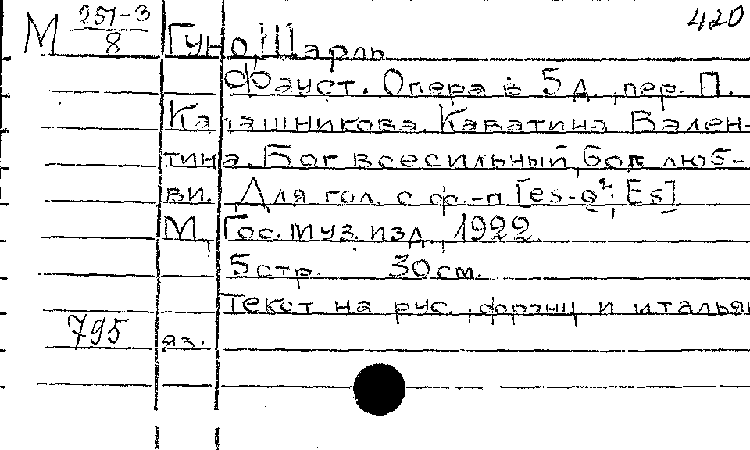 420
М 251-3/8 Гуно, Шарль
Фауст. Опера в 5 д., пер. П.
Калашникова. Каватина Вален-
тина. Бог всесильный, бог люб-
ви. Для гол. с ф.-п [es-g²; Es]
М., Гос. муз. изд., 1922.
5 стр. 30 см.
Текст на рус., франц. и итальян
795 яз.